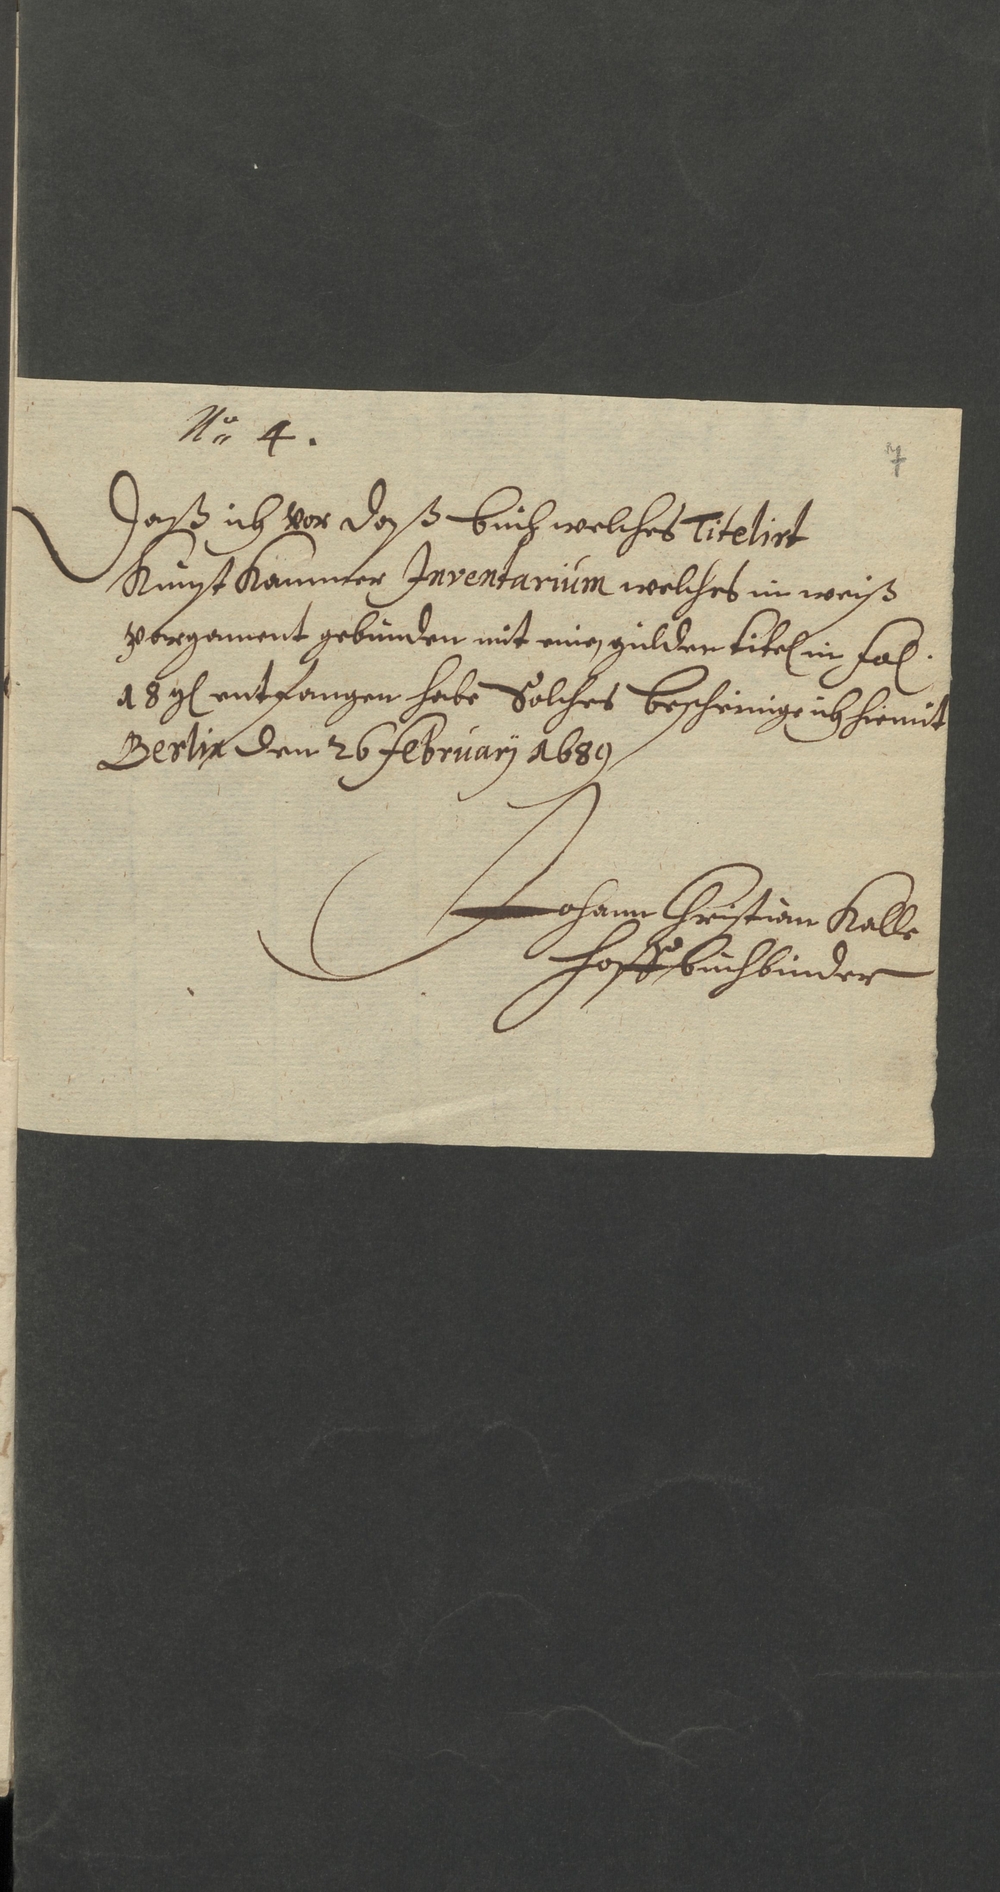 No 4.
7
Daß ich vor daß buch welches Titelirt
Kunst Kammer Inventarium welches in weiß
pergament gebunden mit einen gülden titel in fol.
18 gl entfangen habe Solches bescheinige ich hiemit
Berlin den 26 februarÿ 1689
Johann Christian Kalle
hoff buchbinder